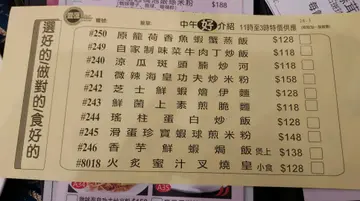 中午好介紹 11時至3時特價供應
選好的做對的食好的
#250 原籠荷香魚蝦蟹蒸飯 $128
#249 自家制味菜牛肉丁炒飯 $118
#240 涼瓜斑頭腩炒河 $118
#241 微辣海皇功夫炒米粉 $158
#242 芝士鮮蝦燴伊麵 $128
#243 鮮菌上素煎脆麵 $118
#244 瑤柱蛋白炒飯 $118
#245 滑蛋珍寶蝦球煎米粉 $148
#246 香芋鮮蝦焗飯 煲上 $138
#8018 火炙蜜汁叉燒皇 小食 $128